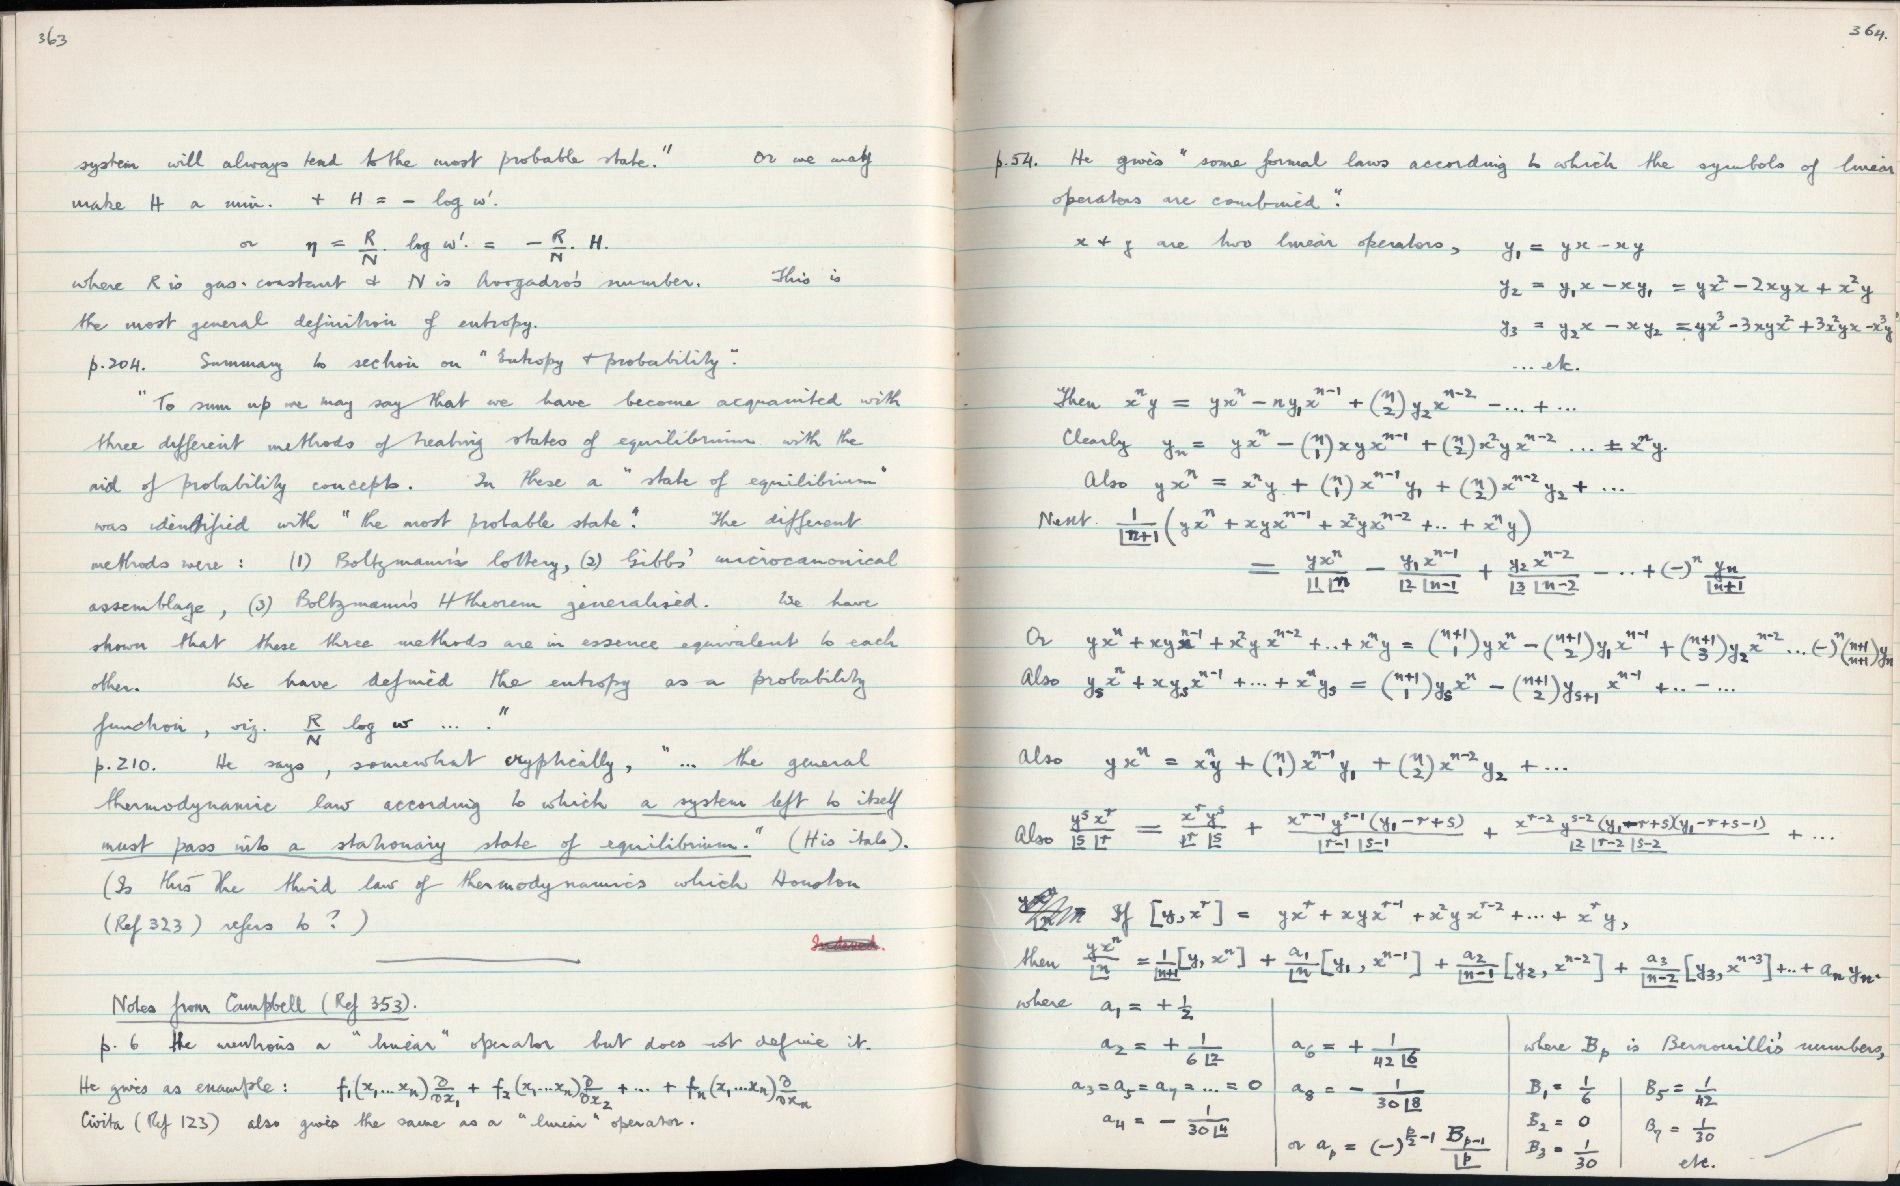 363
system will always tend to the most probable state." Or we may
make H a min. + H = - log w'.
or η = R/N. log w'. = - R/N. H.
where R is gas-constant & N is Avogadro's number. This is
the most general definition of entropy.
p.204. Summary to section on "Entropy & probability".
"To sum up we may say that we have become acquainted with
three different methods of treating states of equilibrium with the
aid of probability concepts. In these a "state of equilibrium"
was identified with "the most probable state". The different
methods were : (1) Boltzmann's lottery, (2) Gibbs' microcanonical
assemblage, (3) Boltzmann's H theorem generalised. We have
shown that these three methods are in essence equivalent to each
other. We have defined the entropy as a probability
function, viz. R/N log w ... ."
p.210. He says, somewhat cryptically, "... the general
thermodynamic law according to which a system left to itself
must pass into a stationary state of equilibrium." (His itals).
(Is this the third law of thermodynamics which Houston
(Ref 323) refers to ? )
Indexed.
Notes from Campbell (Ref 353).
p. 6 He mentions a "linear" operator but does not define it.
He gives as example : f₁(x₁...xₙ)∂/∂x₁ + f₂(x₁...xₙ)∂/∂x₂ + ... + fₙ(x₁...xₙ)∂/∂xₙ
Civita (Ref 123) also gives the same as a "linear" operator.
364.
p.54. He gives "some formal laws according to which the symbols of linear
operators are combined".
x & y are two linear operators, y₁ = yx - xy
y₂ = y₁x - xy₁ = yx² - 2xyx + x²y
y₃ = y₂x - xy₂ = yx³ - 3xyx² + 3x²yx - x³y
... etc.
Then xⁿy = yxⁿ - ny₁xⁿ⁻¹ + (n 2) y₂xⁿ⁻² - ... + ...
Clearly yₙ = yxⁿ - (n 1) xyxⁿ⁻¹ + (n 2) x²yxⁿ⁻² ... ± xⁿy.
Also yxⁿ = xⁿy + (n 1) xⁿ⁻¹y₁ + (n 2) xⁿ⁻²y₂ + ...
Next 1/|n+1 (yxⁿ + xyxⁿ⁻¹ + x²yxⁿ⁻² + .. + xⁿy)
= yxⁿ/|1 |n - y₁xⁿ⁻¹/|2 |n-1 + y₂xⁿ⁻²/|3 |n-2 - .. + (-)ⁿ yₙ/|n+1
Or yxⁿ + xyxⁿ⁻¹ + x²yxⁿ⁻² + .. + xⁿy = (n+1 1) yxⁿ - (n+1 2) y₁xⁿ⁻¹ + (n+1 3) y₂xⁿ⁻² ... (-)ⁿ (n+1 n+1) yₙ
Also yₛxⁿ + xyₛxⁿ⁻¹ + ... + xⁿyₛ = (n+1 1) yₛxⁿ - (n+1 2) yₛ₊₁xⁿ⁻¹ + .. - ...
Also yxⁿ = xⁿy + (n 1) xⁿ⁻¹y₁ + (n 2) xⁿ⁻²y₂ + ...
Also yˢxʳ/|s |r = xʳyˢ/|r |s + xʳ⁻¹yˢ⁻¹(y₁-r+s)/|r-1 |s-1 + xʳ⁻²yˢ⁻²(y₁-r+s)(y₁-r+s-1)/|2 |r-2 |s-2 + ...
If [y, xʳ] = yxʳ + xyxʳ⁻¹ + x²yxʳ⁻² + ... + xʳy,
then yxⁿ/|n = 1/|n+1 [y, xⁿ] + a₁/|n [y₁, xⁿ⁻¹] + a₂/|n-1 [y₂, xⁿ⁻²] + a₃/|n-2 [y₃, xⁿ⁻³] + .. + aₙyₙ.
where a₁ = + 1/2
a₂ = + 1/6|2
a₃ = a₅ = a₇ = ... = 0
a₄ = - 1/30|4
a₆ = + 1/42|6
a₈ = - 1/30|8
or aₚ = (-)^(p/2 - 1) Bₚ₋₁/|p
where Bₚ is Bernouilli's numbers,
B₁ = 1/6
B₂ = 0
B₃ = 1/30
B₅ = 1/42
B₇ = 1/30
etc.